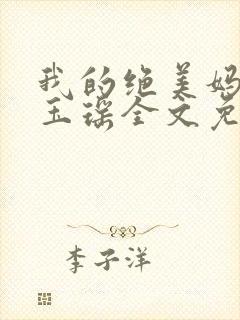 我的绝美妈
玉瑶全文免
李子洋